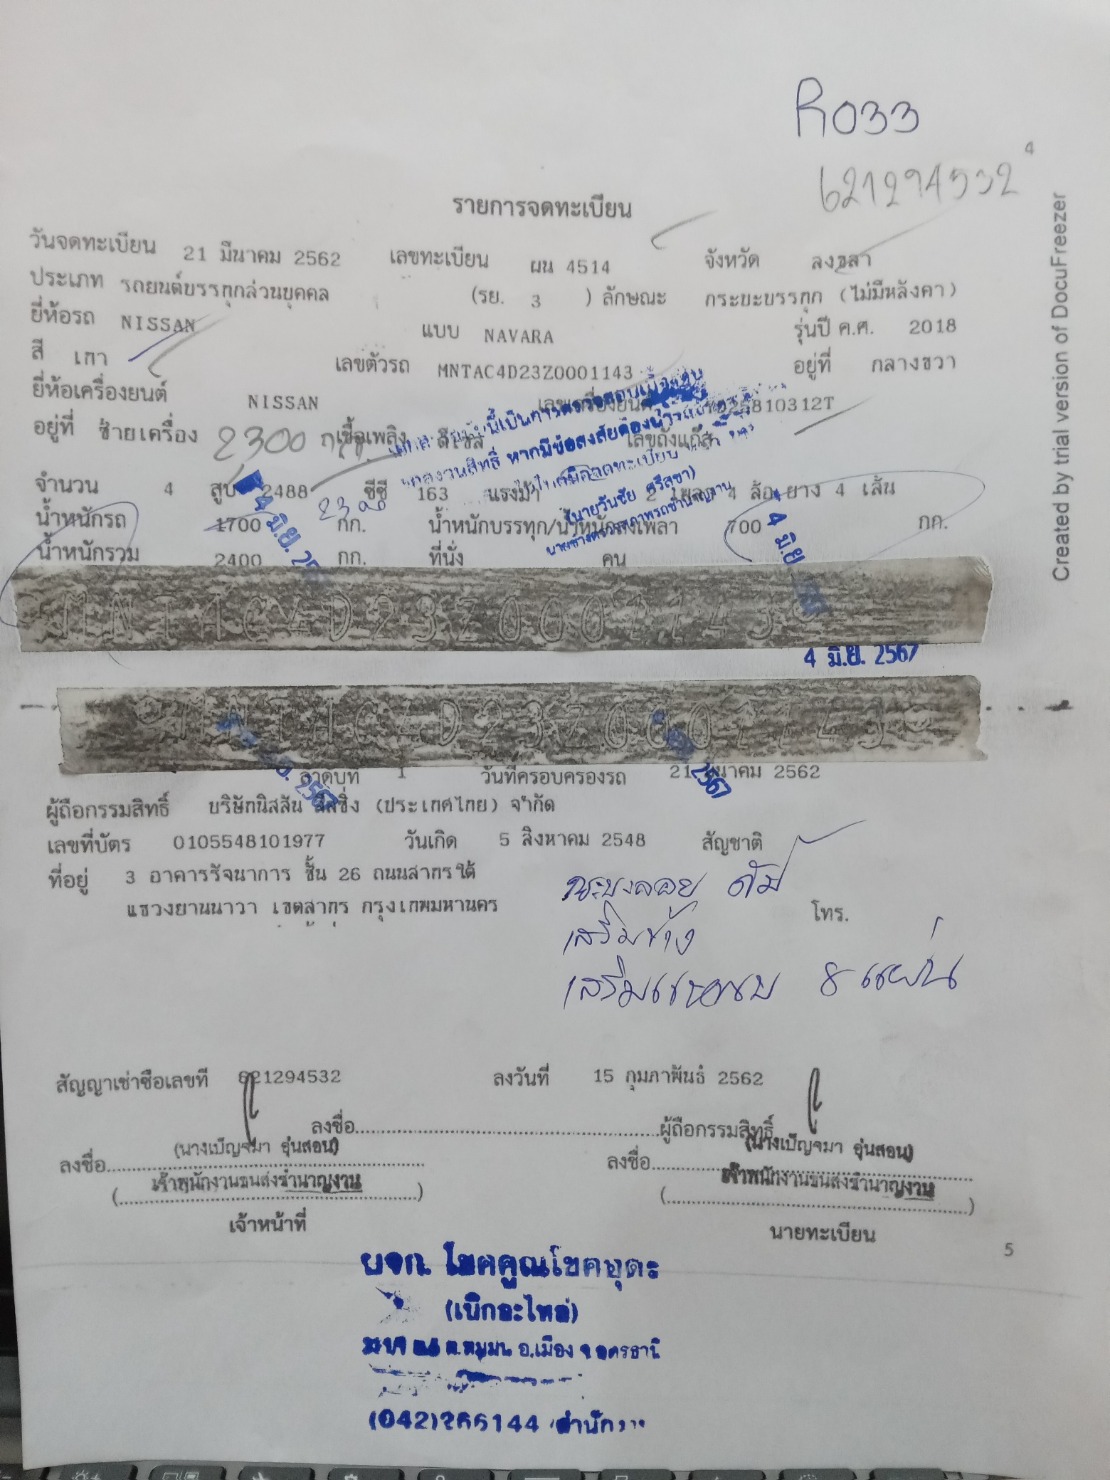 R033
621294532
4
รายการจดทะเบียน
วันจดทะเบียน 21 มีนาคม 2562 เลขทะเบียน ผน 4514 จังหวัด สงขลา
ประเภท รถยนต์บรรทุกส่วนบุคคล (รย. 3 ) ลักษณะ กระบะบรรทุก (ไม่มีหลังคา)
ยี่ห้อรถ NISSAN แบบ NAVARA รุ่นปี ค.ศ. 2018
สี เทา เลขตัวรถ MNTAC4D23Z0001143 อยู่ที่ กลางขวา
ยี่ห้อเครื่องยนต์ NISSAN
อยู่ที่ ซ้ายเครื่อง 2300 เชื้อเพลิง ดีเซล เลขถังแก๊ส
จำนวน 4 สูบ 2488 ซีซี 163 แรงม้า 2 เพลา 4 ล้อ ยาง 4 เส้น
น้ำหนักรถ 1700 2300 กก. น้ำหนักบรรทุก/น้ำหนักลงเพลา 700 กก.
น้ำหนักรวม 2400 กก. ที่นั่ง คน
หากมีข้อสงสัยต้อง
(นายวันชัย ศรีสชา)
4 มิ.ย. 2567
ลำดับที่ 1 วันที่ครอบครองรถ 21 มีนาคม 2562
ผู้ถือกรรมสิทธิ์ บริษัทนิสสัน ลีสซิ่ง (ประเทศไทย) จำกัด
เลขที่บัตร 0105548101977 วันเกิด 5 สิงหาคม 2548 สัญชาติ
ที่อยู่ 3 อาคารรัจนาการ ชั้น 26 ถนนสาทรใต้
แขวงยานนาวา เขตสาทร กรุงเทพมหานคร
โทร.
เสริมข้าง
เสริมแหนบ 8 แผ่น
สัญญาเช่าซื้อเลขที่ 621294532 ลงวันที่ 15 กุมภาพันธ์ 2562
ลงชื่อ ผู้ถือกรรมสิทธิ์
(นางเบ็ญจมา อุ่นสอน) (นางเบ็ญจมา อุ่นสอน)
ลงชื่อ ลงชื่อ
เจ้าพนักงานขนส่งชำนาญงาน เจ้าพนักงานขนส่งชำนาญงาน
เจ้าหน้าที่ นายทะเบียน
5
หจก. โชคคูณโชคอุดร
(เบิกอะไหล่)
อ.เมือง จ.อุดรธานี
(042)266144
Created by trial version of DocuFreezer